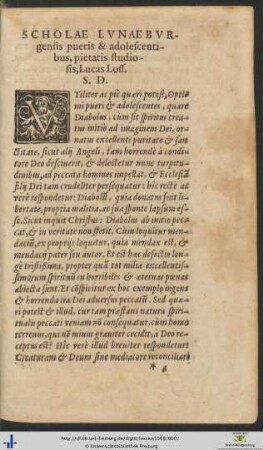 SCHOLAE LVNAEBVR
gensis pueris & adolescenti
bus, pietatis studio-
sis, Lucas Loss.
S. D.
VTiliter ac piè quæri potest, Optimi
pueri & adolescentes, quare
Diabolus, cum sit spiritus crea
tus initiò ad imaginem Dei, or-
natus excellenti puritate & san
ctitate, sicut alij Angeli, tam horrendè à condi-
tore Deo desciuerit, & delectetur nunc turpitu-
dinibus, ad peccata homines impellat, & Ecclesiā
filij Dei tam crudeliter persequatur: hic rectè at
verè respondetur: Diaboli, quia donatus fuit li-
bertate, propria malitia, ac sua sponte lapsum es-
se. Sicut inquit Christus: Diabolus ab initio pec-
cat, & in veritate non stetit. Cùm loquitur men-
daciū, ex proprijs loquitur, quia mendax est, &
mendacij pater seu autor. Et est hæc defectio lon-
gè tristissima, propter quā tot milia excellentis-
simorum spirituū in horribiles & æternas pœnas
abiecta sunt. Et cōspicitur ex hoc exemplo ingens
& horrenda ira Dei aduersus peccatū. Sed quæ-
ri potest & illud, cur tam præstans natura spiri-
tualis peccati veniam nō consequatur, cùm homo
terrenus, qui nō minus grauiter cecidit, à Deo re-
ceptus est? Hic verè illud breuiter respondetur:
Creaturam & Deum sine mediatore reconciliari
http://dl.ub.uni-freiburg.de/diglit/
© Universitätsbibliothek Freiburg